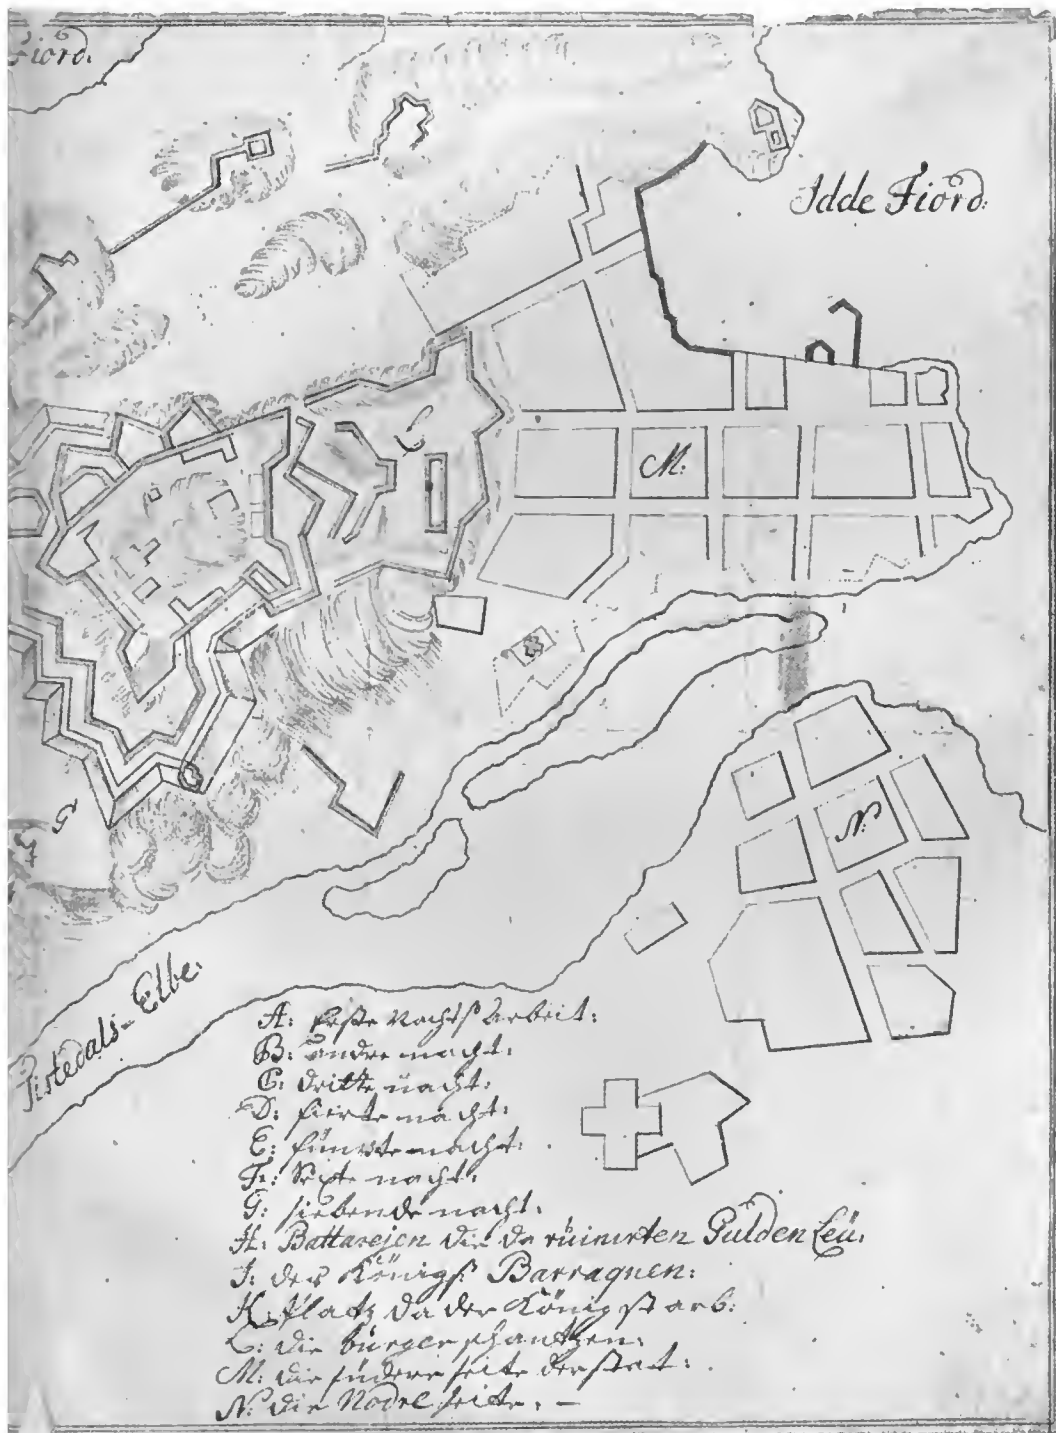 Fiord.
Idde Fiord:
L
M:
N:
G
Tistedals-Elbe:
A: Erste Nachts Arbeit:
B: andre nacht:
C: dritte nacht:
D: fierte nacht:
E: fünvte nacht:
F: Sexte nacht:
G: siebende nacht:
H: Battarejen die da ruinirten Gülden Leü.
J: der Königs Barraquen:
K: Platz da der König starb:
L: die bürger schantzen:
M: die südere seite der stat:
N: die Nodre seite. –